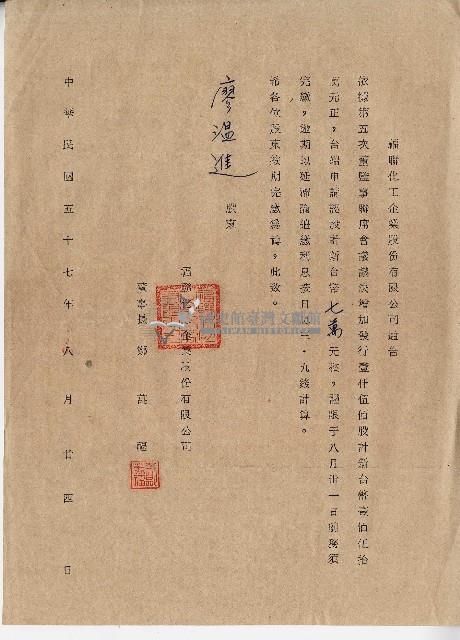 福聯化工企業股份有限公司通告
依據第五次董監事聯席會議議決增加發行壹仟伍佰股計新台幣壹佰伍拾
萬元正，台端申請認股計新台幣七萬元整，謹限于八月卅一日前務須
完繳，逾期即延滯論追繳利息按日息三．九錢計算。
希各位股東按期完繳為禱，此致。
廖溫進 股東
福聯化工企業股份有限公司
董事長 鄭萬福
國史館臺灣文獻館
中華民國五十七年八月廿四日